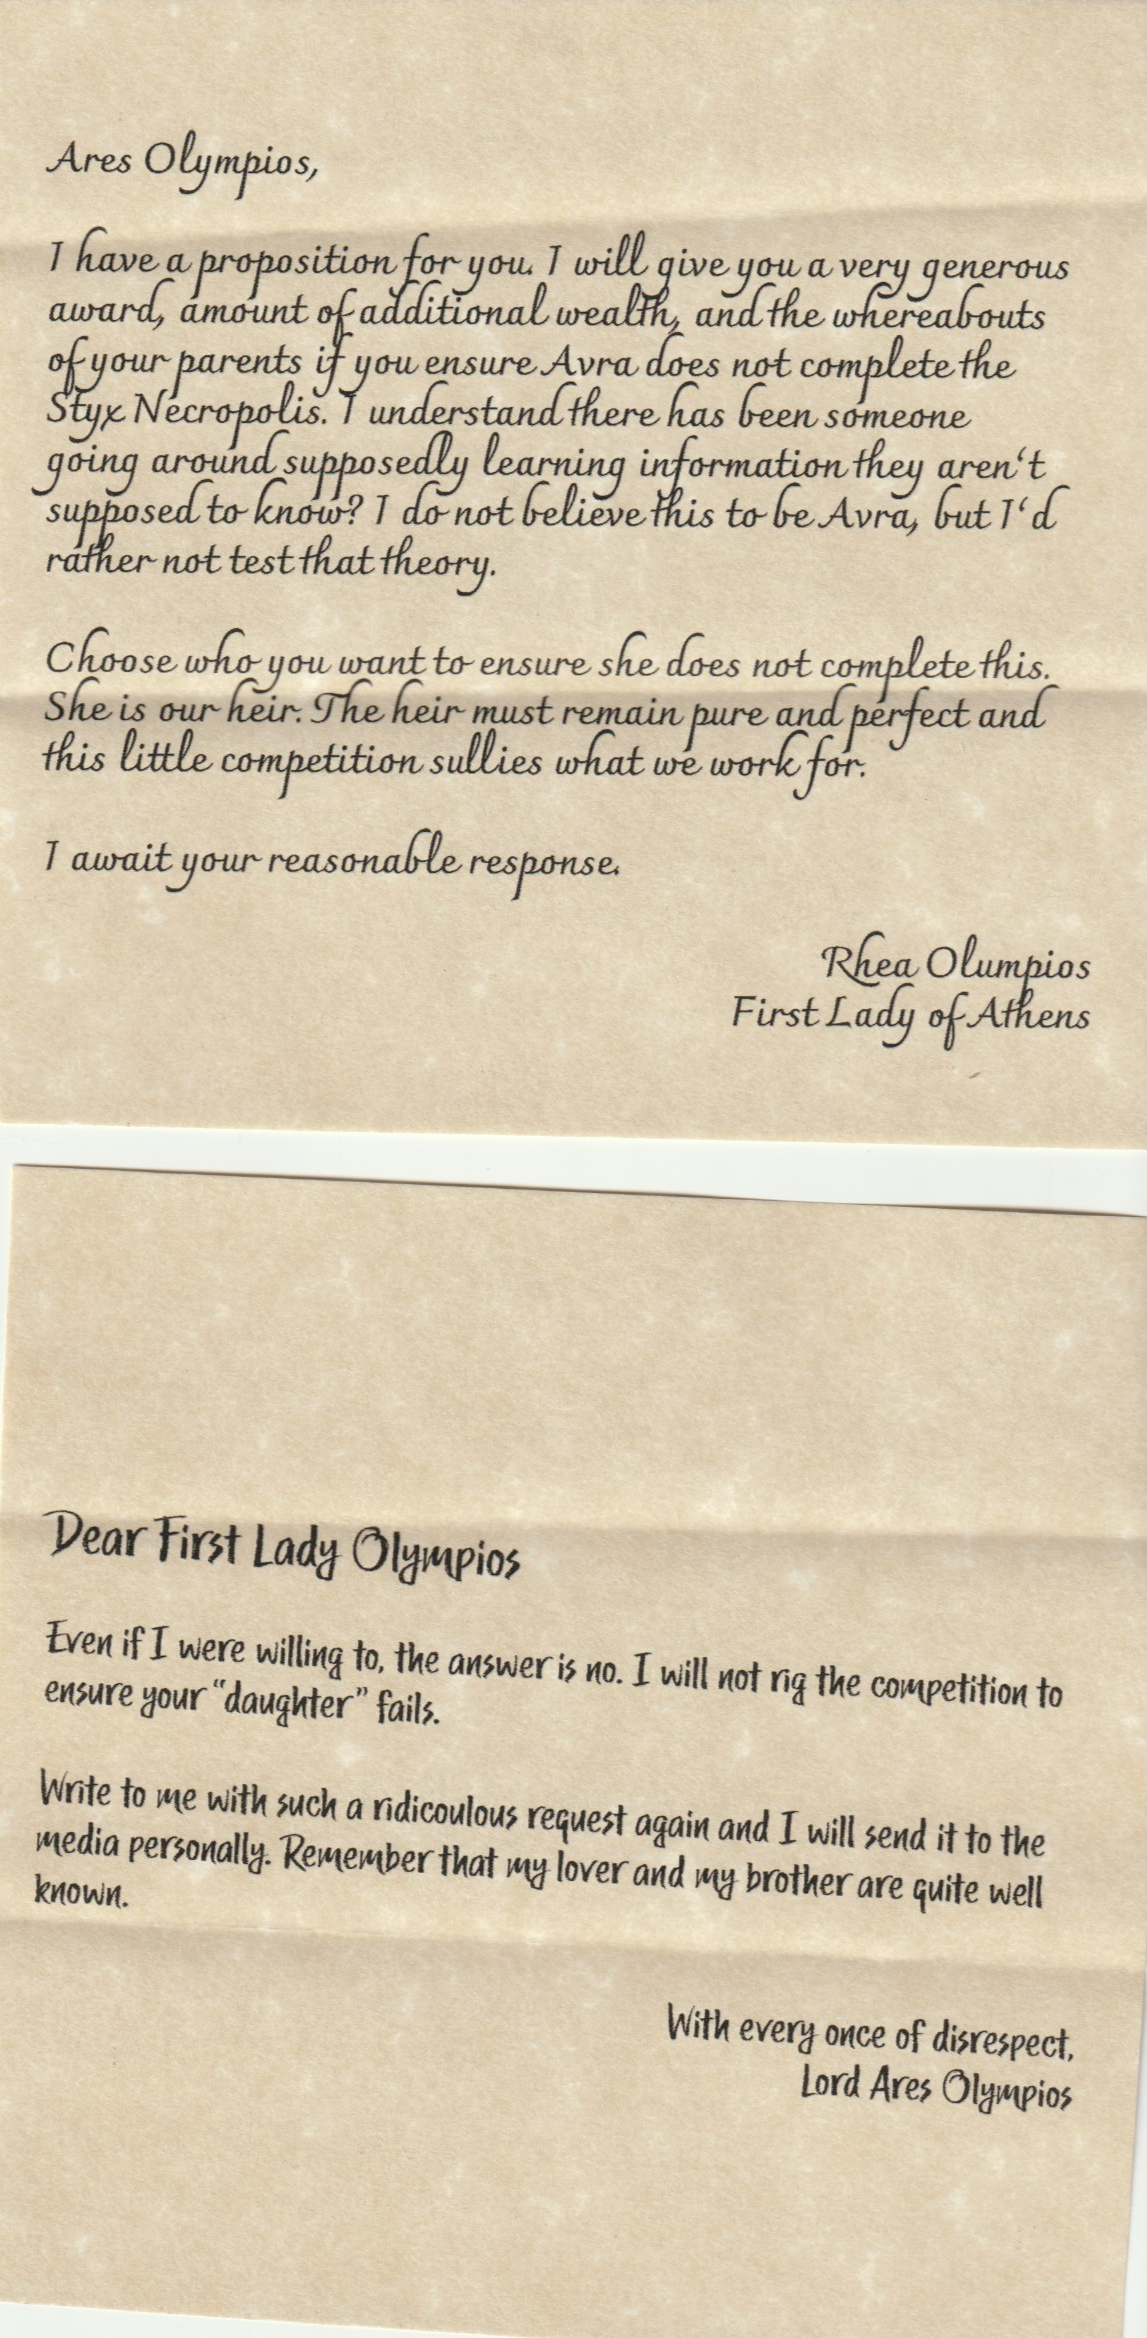 Ares Olympios,
I have a proposition for you. I will give you a very generous
award, amount of additional wealth, and the whereabouts
of your parents if you ensure Avra does not complete the
Styx Necropolis. I understand there has been someone
going around supposedly learning information they aren‘t
supposed to know? I do not believe this to be Avra, but I‘d
rather not test that theory.
Choose who you want to ensure she does not complete this.
She is our heir. The heir must remain pure and perfect and
this little competition sullies what we work for.
I await your reasonable response.
Rhea Olumpios
First Lady of Athens
Dear First Lady Olympios
Even if I were willing to, the answer is no. I will not rig the competition to
ensure your "daughter" fails.
Write to me with such a ridicoulous request again and I will send it to the
media personally. Remember that my lover and my brother are quite well
known.
With every once of disrespect,
Lord Ares Olympios